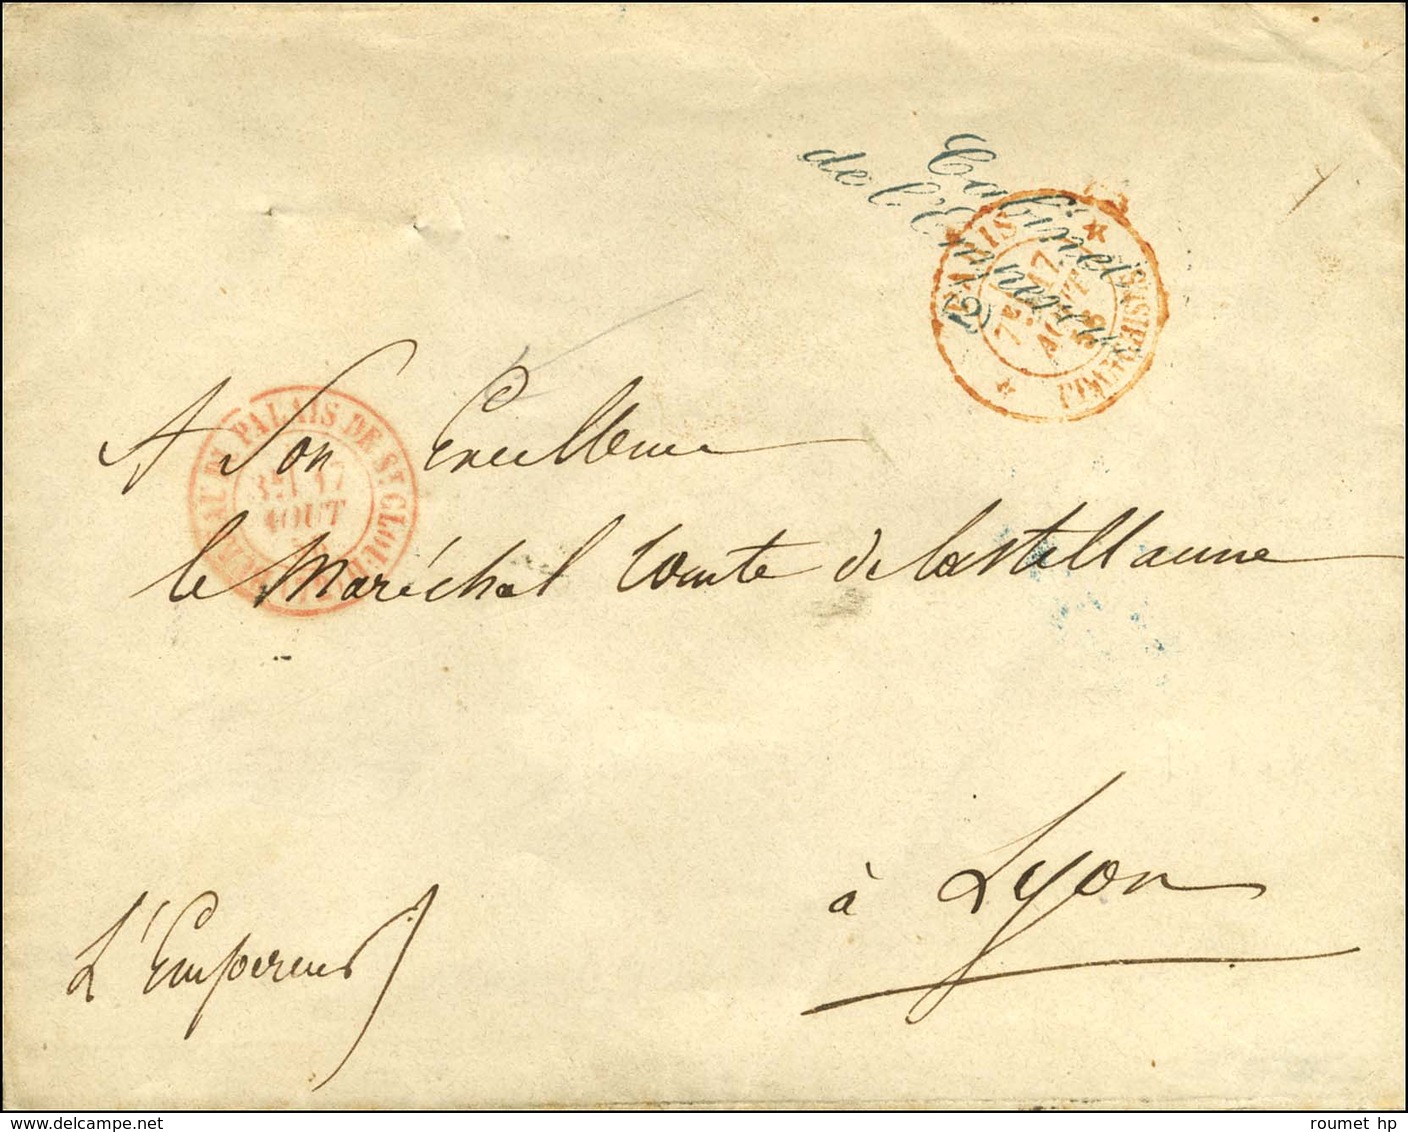 Cabinet
de l'Empereur
PARIS
(2)
7E 17
AOUT
A Son Excellence
PALAIS DE ST CLOUD
3E 17
AOUT
le Maréchal Comte de Castellanne
à Lyon
L'Empereur)
roumet hp
delcampe.net